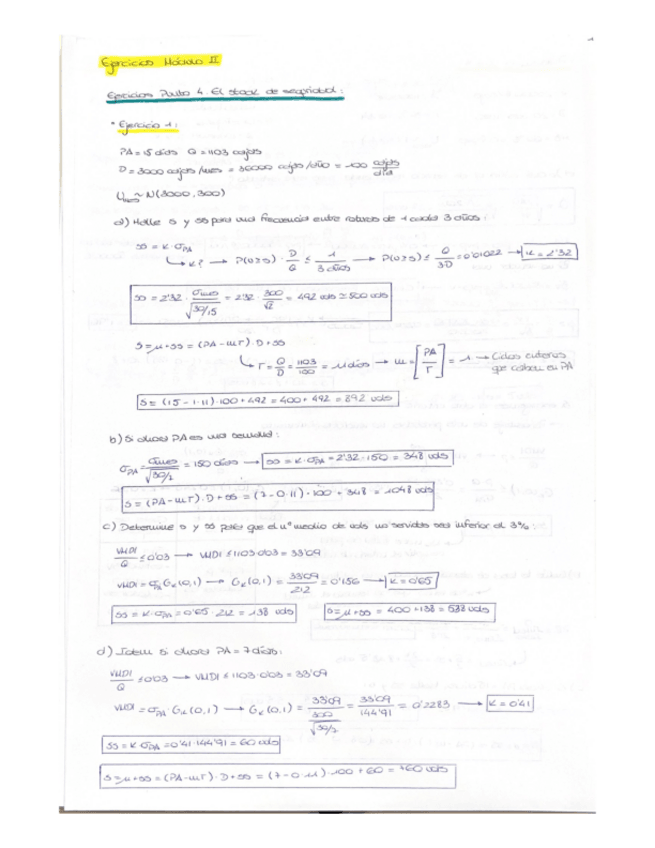 Ejercicios Módulo II
Ejercicios Punto 4. El stock de seguridad:
* Ejercicio 1:
PA = 15 días Q = 1103 cajas
D = 3000 cajas/mes = 36000 cajas/año = 100 cajas/día
Umes ~ N(3000, 300)
a) Halle s y ss para una frecuencia entre roturas de 1 cada 3 años:
ss = K · σPA
K? → P(U≥s) · D/Q ≤ 1/3 años → P(U≥s) ≤ Q/3D = 0'01022 → K = 2'32
ss = 2'32 · σmes/√30/15 = 2'32 · 300/√2 = 492 uds ≃ 500 uds
s = μ + ss = (PA - mT) · D + ss
T = Q/D = 1103/100 = 11 días → m = [PA/T] = 1 → Ciclos enteros que caben en PA
s = (15 - 1·11) · 100 + 492 = 400 + 492 = 892 uds
b) Si ahora PA es una semana:
σPA = σmes/√30/7 = 150 días → ss = K · σPA = 2'32 · 150 = 348 uds
s = (PA - mT) · D + ss = (7 - 0·11) · 100 + 348 = 1048 uds
c) Determine s y ss para que el nº medio de uds no servidas sea inferior al 3%:
VMDI/Q ≤ 0'03 → VMDI ≤ 1103·0'03 = 33'09
VMDI = σPA Gk(0,1) → Gk(0,1) = 33'09/212 = 0'156 → K = 0'65
ss = K · σPA = 0'65 · 212 = 138 uds s = μ + ss = 400 + 138 = 538 uds
d) Idem si ahora PA = 7 días:
VMDI/Q ≤ 0'03 → VMDI ≤ 1103·0'03 = 33'09
VMDI = σPA · Gk(0,1) → Gk(0,1) = 33'09/300/√30/7 = 33'09/144'91 = 0'2283 → K = 0'41
ss = K · σPA = 0'41 · 144'91 = 60 uds
s = μ + ss = (PA - mT) · D + ss = (7 - 0·11) · 100 + 60 = 760 uds